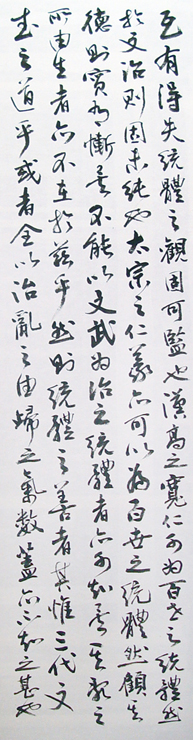 互有得失統體之觀固可監也漢高之寬仁可為百世之統體然
於文治則固未純也太宗之仁義亦可以為百世之統體然顧其
德則實有慚焉不能以文武為治之統體者亦可知焉
所由生者亦不在於茲乎然則統體之善者其惟三代文
武之道乎或者全以治亂之由歸之氣數蓋亦不知之甚也